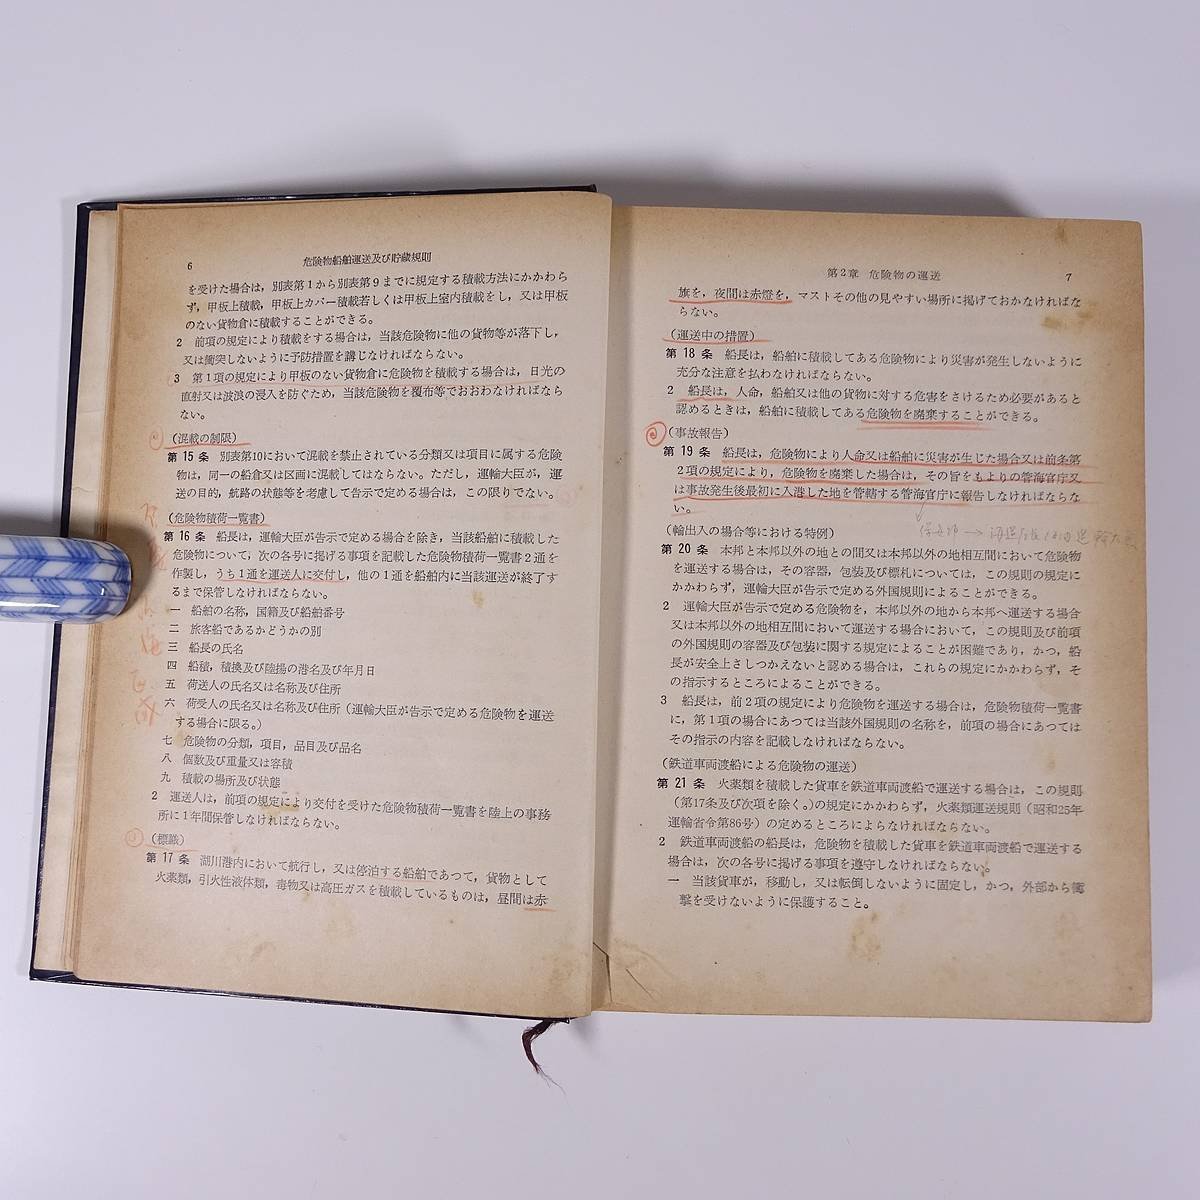 6
危険物船舶運送及び貯蔵規則
を受けた場合は，別表第1から別表第9までに規定する積載方法にかかわら
ず，甲板上積載，甲板上カバー積載若しくは甲板上室内積載をし，又は甲板
のない貨物倉に積載することができる。
2　前項の規定により積載をする場合は，当該危険物に他の貨物等が落下し，
又は衝突しないように予防措置を講じなければならない。
3　第1項の規定により甲板のない貨物倉に危険物を積載する場合は，日光の
直射又は波浪の浸入を防ぐため，当該危険物を覆布等でおおわなければなら
ない。
（混載の制限）
第15条　別表第10において混載を禁止されている分類又は項目に属する危険
物は，同一の船倉又は区画に混載してはならない。ただし，運輸大臣が，運
送の目的，航路の状態等を考慮して告示で定める場合は，この限りでない。
（危険物積荷一覧書）
第16条　船長は，運輸大臣が告示で定める場合を除き，当該船舶に積載した
危険物について，次の各号に掲げる事項を記載した危険物積荷一覧書2通を
作製し，うち1通を運送人に交付し，他の1通を船舶内に当該運送が終了す
るまで保管しなければならない。
一　船舶の名称，国籍及び船舶番号
二　旅客船であるかどうかの別
三　船長の氏名
四　船積，積換及び陸揚の港名及び年月日
五　荷送人の氏名又は名称及び住所
六　荷受人の氏名又は名称及び住所（運輸大臣が告示で定める危険物を運送
する場合に限る。）
七　危険物の分類，項目，品目及び品名
八　個数及び重量又は容積
九　積載の場所及び状態
2　運送人は，前項の規定により交付を受けた危険物積荷一覧書を陸上の事務
所に1年間保管しなければならない。
（標識）
第17条　湖川港内において航行し，又は停泊する船舶であつて，貨物として
火薬類，引火性液体類，毒物又は高圧ガスを積載しているものは，昼間は赤
第2章　危険物の運送
7
旗を，夜間は赤燈を，マストその他の見やすい場所に掲げておかなければな
らない。
（運送中の措置）
第18条　船長は，船舶に積載してある危険物により災害が発生しないように
充分な注意を払わなければならない。
2　船長は，人命，船舶又は他の貨物に対する危害をさけるため必要があると
認めるときは，船舶に積載してある危険物を廃棄することができる。
（事故報告）
第19条　船長は，危険物により人命又は船舶に災害が生じた場合又は前条第
2項の規定により，危険物を廃棄した場合は，その旨をもよりの管海官庁又
は事故発生後最初に入港した地を管轄する管海官庁に報告しなければならな
い。
（輸出入の場合等における特例）
第20条　本邦と本邦以外の地との間又は本邦以外の地相互間において危険物
を運送する場合は，その容器，包装及び標札については，この規則の規定に
かかわらず，運輸大臣が告示で定める外国規則によることができる。
2　運輸大臣が告示で定める危険物を，本邦以外の地から本邦へ運送する場合
又は本邦以外の地相互間において運送する場合において，この規則及び前項
の外国規則の容器及び包装に関する規定によることが困難であり，かつ，船
長が安全上さしつかえないと認める場合は，これらの規定にかかわらず，そ
の指示するところによることができる。
3　船長は，前2項の規定により危険物を運送する場合は，危険物積荷一覧書
に，第1項の場合にあつては当該外国規則の名称を，前項の場合にあつては
その指示の内容を記載しなければならない。
（鉄道車両渡船による危険物の運送）
第21条　火薬類を積載した貨車を鉄道車両渡船で運送する場合は，この規則
（第17条及び次項を除く。）の規定にかかわらず，火薬類運送規則（昭和25年
運輸省令第86号）の定めるところによらなければならない。
2　鉄道車両渡船の船長は，危険物を積載した貨車を鉄道車両渡船で運送する
場合は，次の各号に掲げる事項を遵守しなければならない。
一　当該貨車が，移動し，又は転倒しないように固定し，かつ，外部から衝
撃を受けないように保護すること。